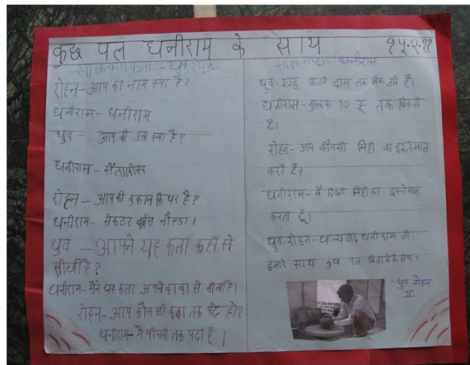 कुछ पल धनीराम के साथ १५-२-११
रोहन - आप का नाम क्या है?
धनीराम - धनीराम
ध्रुव - आप की उम्र क्या है?
धनीराम - सैंतालीस
रोहन - आपकी दुकान किधर है?
धनीराम - सेक्टर बाईस नोएडा।
ध्रुव - आपने यह कला कहाँ से
सीखी है?
धनीराम - मैंने यह कला अपने बाबा से सीखी है।
रोहन - आप कौन सी कक्षा तक पढ़े हो?
धनीराम - मैं पाँचवी तक पढ़ा हूँ।
धनीराम
ध्रुव - यह कितने दाम तक बिकते है?
धनीराम - गुल्लक 10 रु तक बिकती
है।
रोहन - आप कौनसी मिट्टी का इस्तेमाल
करते है?
धनीराम - मैं चिकनी मिट्टी का इस्तेमाल
करता हूँ।
ध्रुव-रोहन - धन्यवाद धनीराम जी
हमारे साथ कुछ पल बिताने के लिए।
- ध्रुव, रोहन